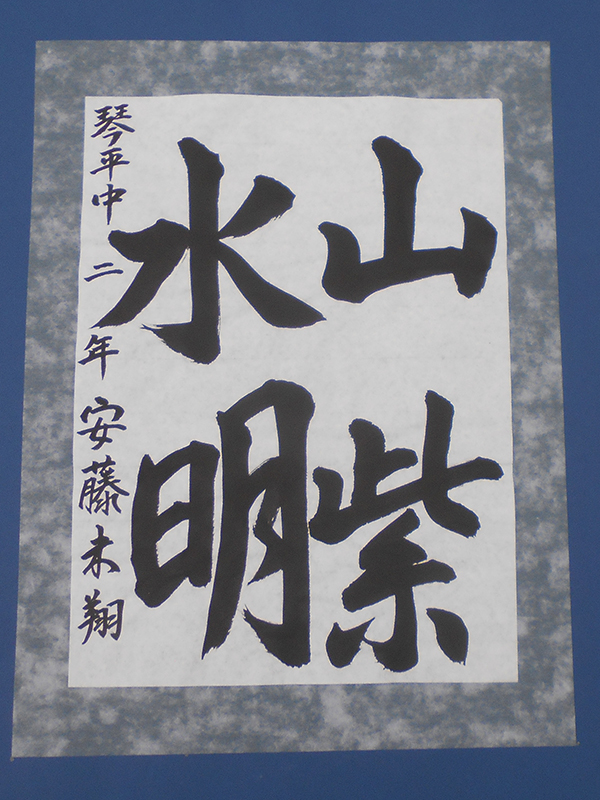 山紫
水明
琴平中二年安藤未翔